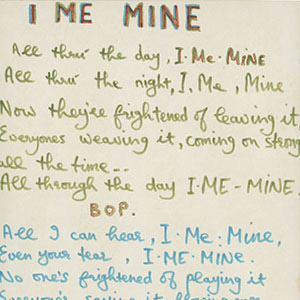 I ME MINE
All thru' the day, I·Me·MINE
All thru' the night, I, Me, Mine
Now they're frightened of leaving it
Everyones weaving it, coming on strong
all the time...
All through the day I·ME-MINE
BOP.
All I can hear, I·Me:Mine,
Even your tear, I·ME·MINE.
No one's frightened of playing it
Everyone's saying it,